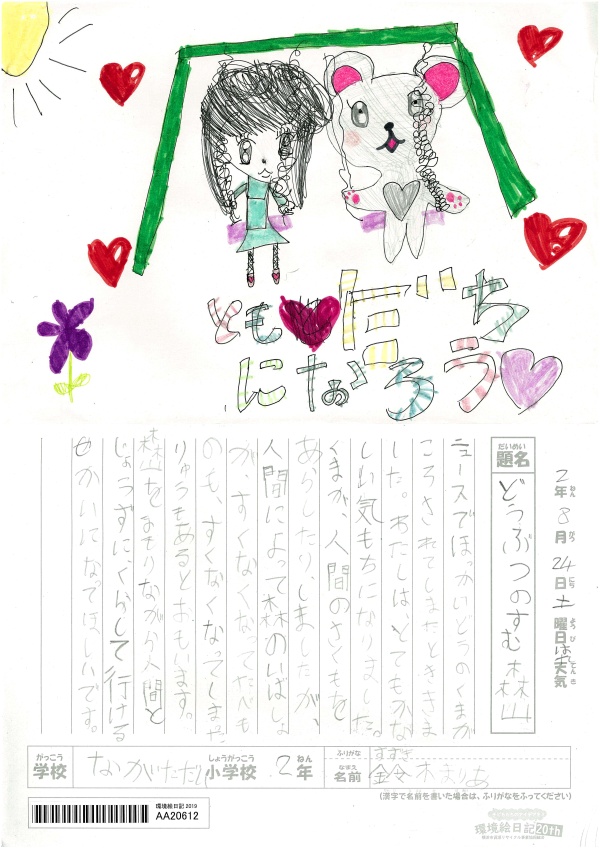 とも だち
になろう
2年ねん 8月がつ 24日にち 土曜日ようび 天気てんき
題名だいめい どうぶつのすむ森山
ニュースでほっかいどうのくまが
ころされてしまたとききま
した。わたしは、とてもかな
しい気もちになりました。
くまが、人間のさくもを
あらしたり、しま たが、
人間によって森のいばしょ
が、すくなくなってたべも
のも、すくなくなってしまた
りゆうもあるとおもいます。
森山をまもりながら人間と
じょうずに、くらして行ける
せかいになってほしいです。
学校がっこう ながつただ小学校しょうがっこう 2年ねん
ふりがな すずき
名前なまえ 鈴木まりあ
(漢字で名前を書いた場合は、ふりがなをふってください)
環境絵日記2019
AA20612
環境絵日記20th